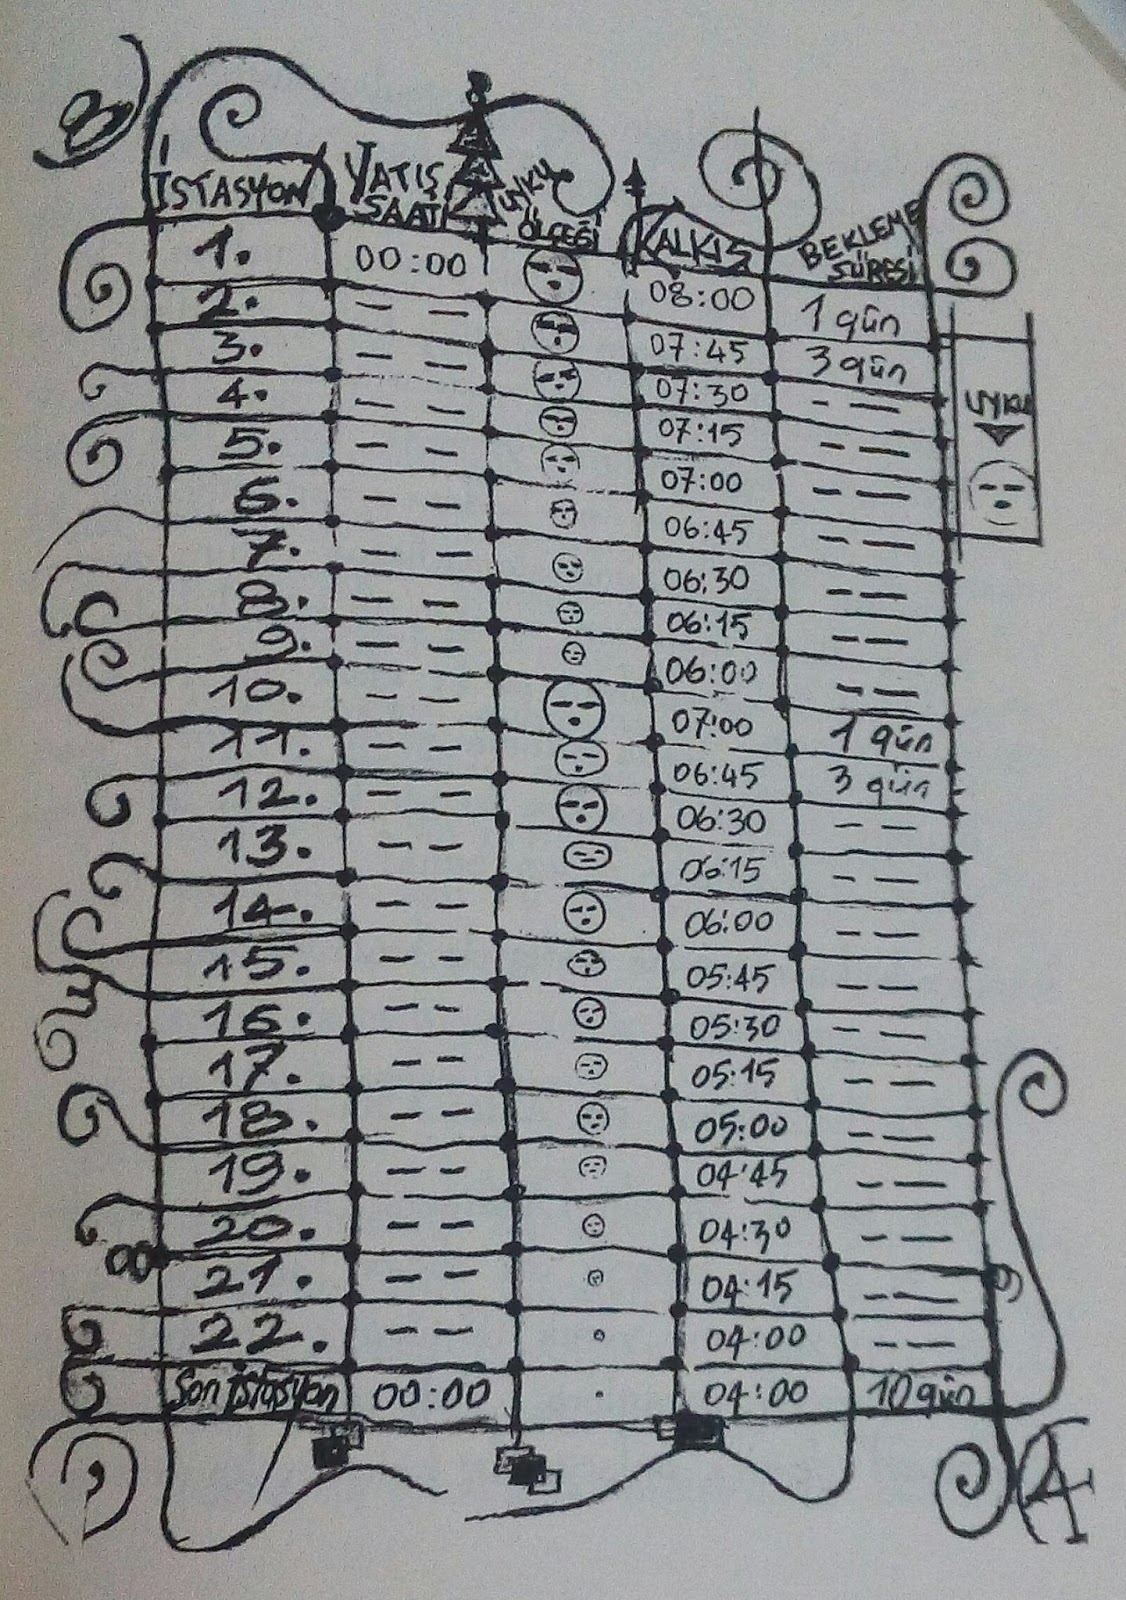 8
İSTASYON YATIŞ SAATİ UYKU ÖLÇEĞİ KALKIŞ BEKLEME SÜRESİ
1. 00:00 08:00 1 gün
2. — — 07:45 3 gün
3. — — 07:30 — —
4. — — 07:15 — —
5. — — 07:00 — —
6. — — 06:45 — —
7. — — 06:30 — —
8. — — 06:15 — —
9. — — 06:00 — —
10. — — 07:00 1 gün
11. — — 06:45 3 gün
12. — — 06:30 — —
13. — — 06:15 — —
14. — — 06:00 — —
15. — — 05:45 — —
16. — — 05:30 — —
17. — — 05:15 — —
18. — — 05:00 — —
19. — — 04:45 — —
20. — — 04:30 — —
21. — — 04:15 — —
22. — — 04:00 — —
Son istasyon 00:00 04:00 10 gün
UYKU
4